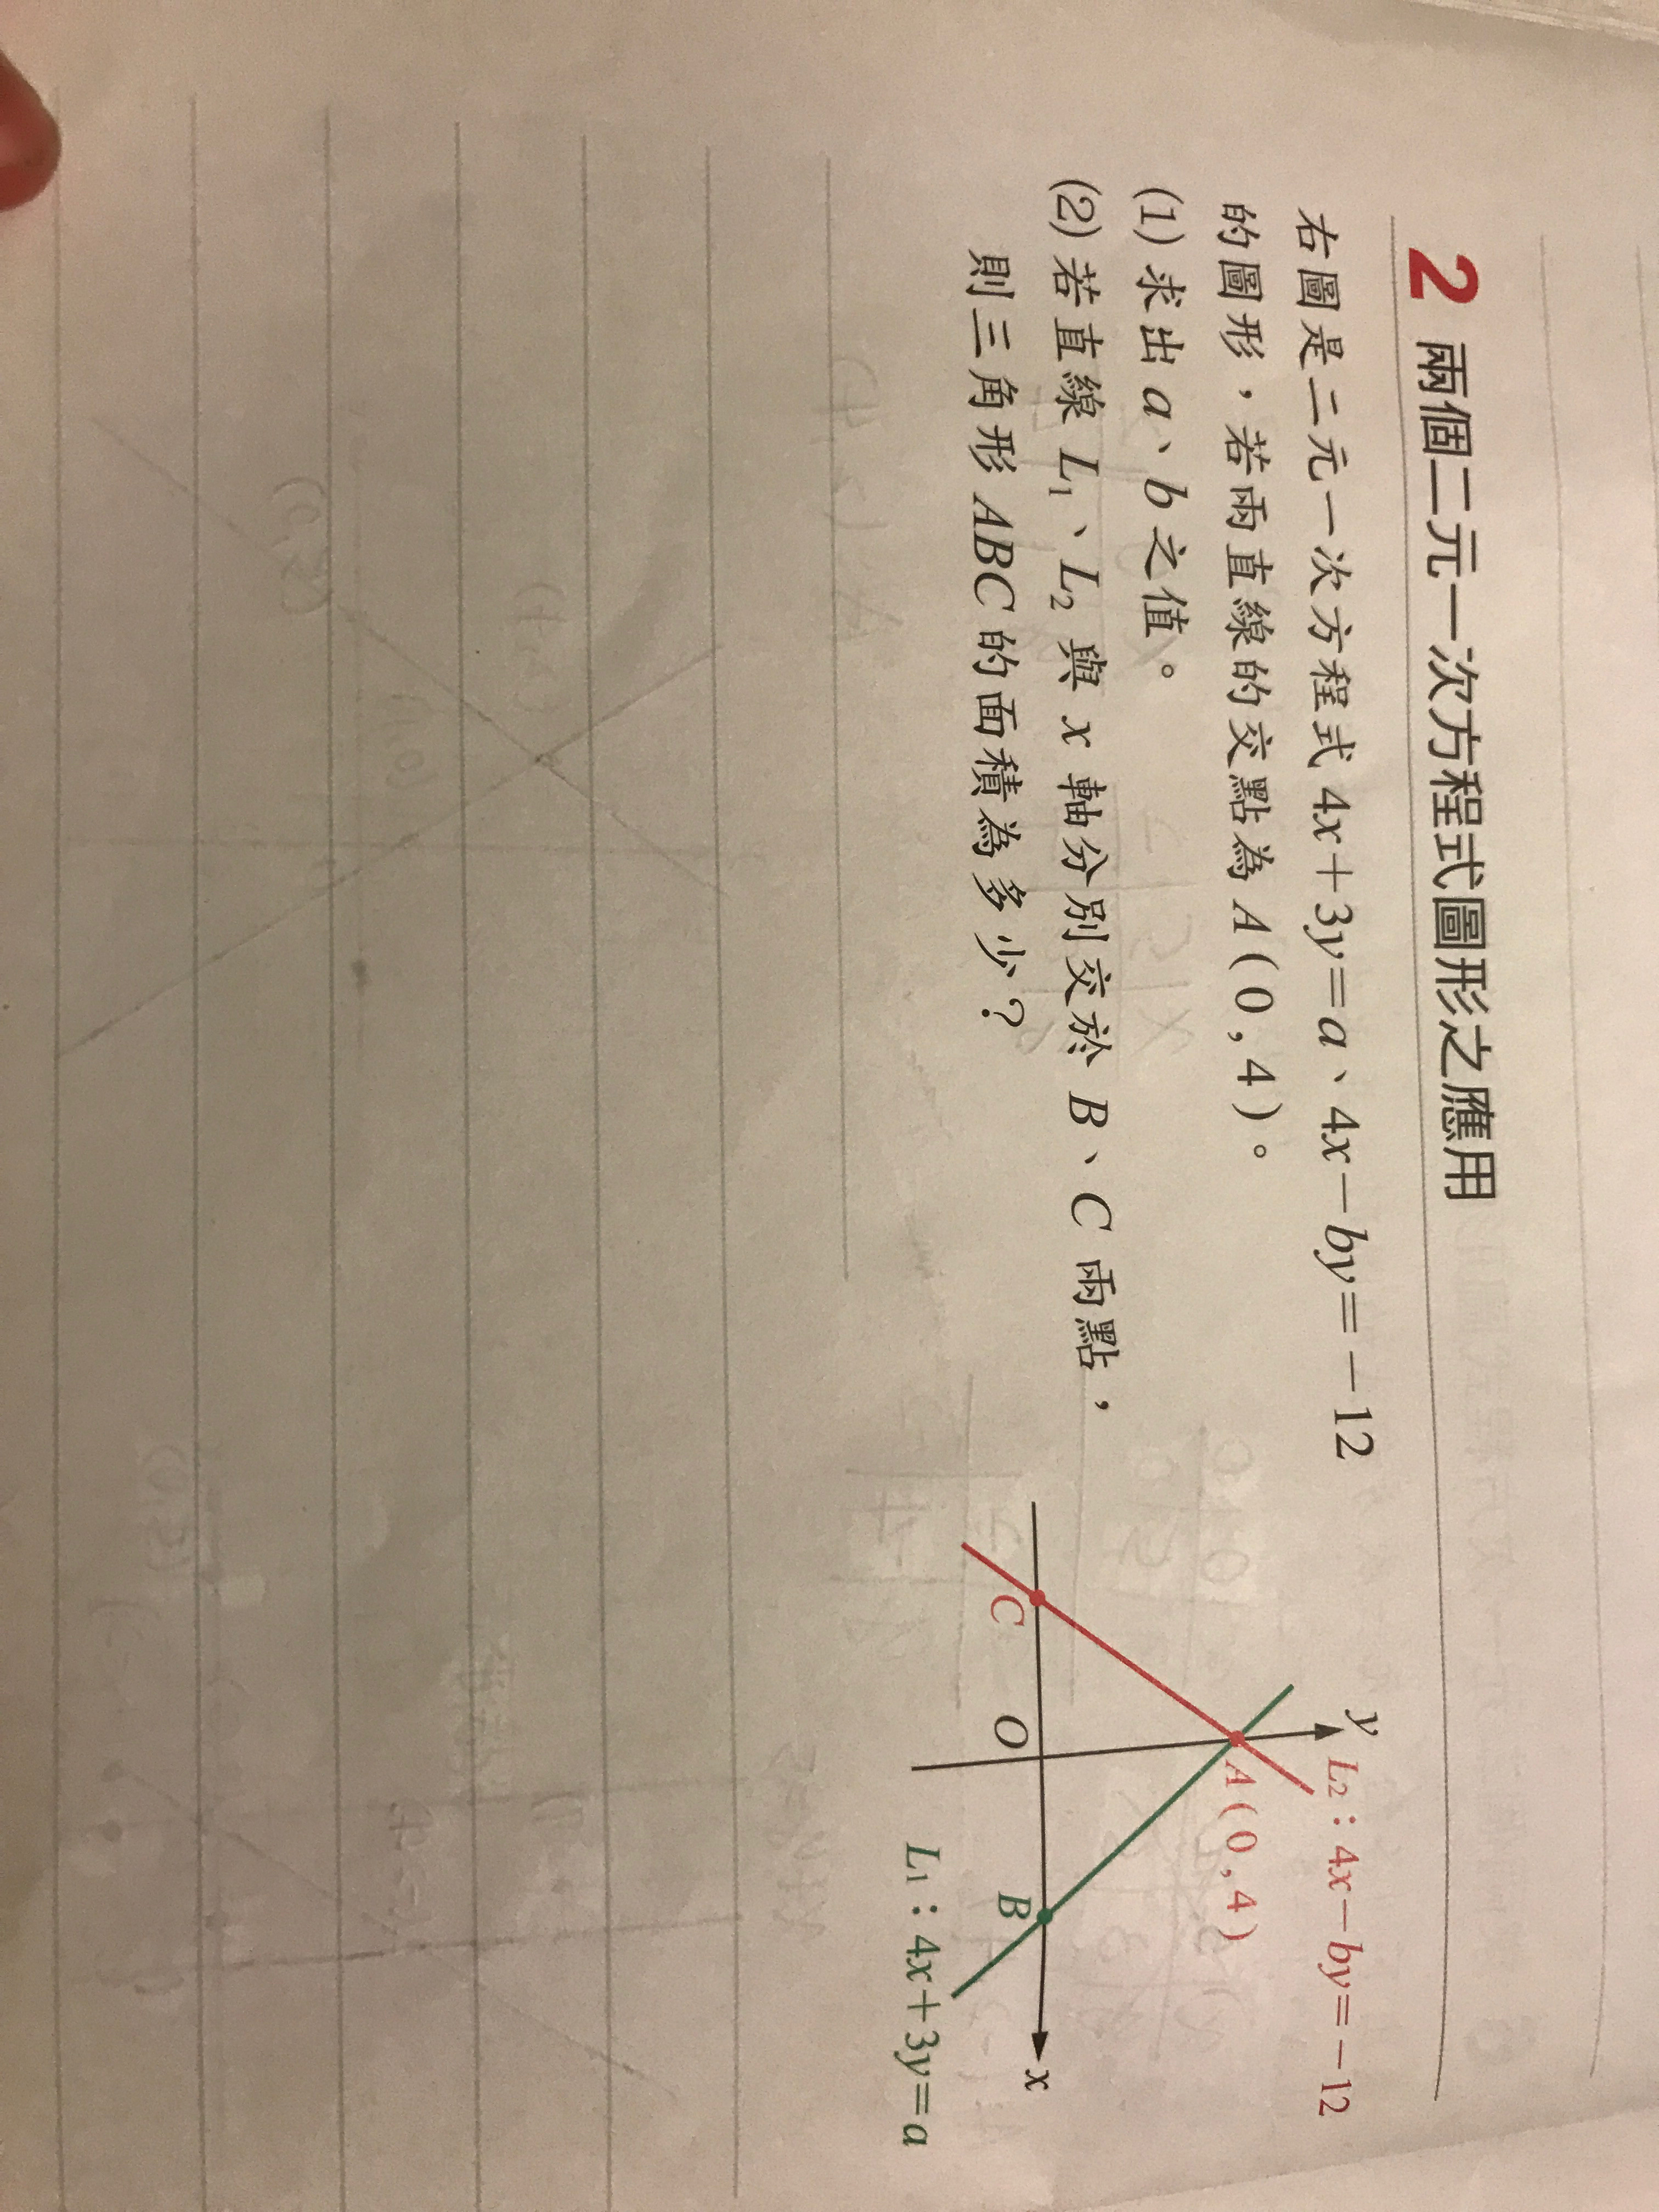 2 兩個二元一次方程式圖形之應用
右圖是二元一次方程式 4x+3y=a、4x-by=-12
的圖形，若兩直線的交點為 A(0,4)。
(1) 求出 a、b 之值。
(2) 若直線 L₁、L₂ 與 x 軸分別交於 B、C 兩點，
則三角形 ABC 的面積為多少？
y
L₂：4x-by=-12
A(0,4)
C
O
B
x
L₁：4x+3y=a